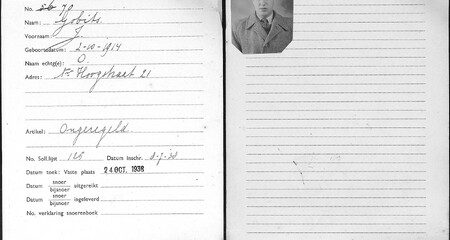 No. 70
Naam: Gobits
Voornaam: J.
Geboortedatum: 2-10-1914
Naam echtg(e): O.
Adres: Hoogstraat 21
Artikel: Ongeregeld.
No. Soll.lijst 125 Datum Inschr.
Datum zoek: Vaste plaats 24 OCT. 1938
Datum snoer bijsnoer uitgereikt
Datum snoer bijsnoer ingeleverd
No. verklaring snoerenboek